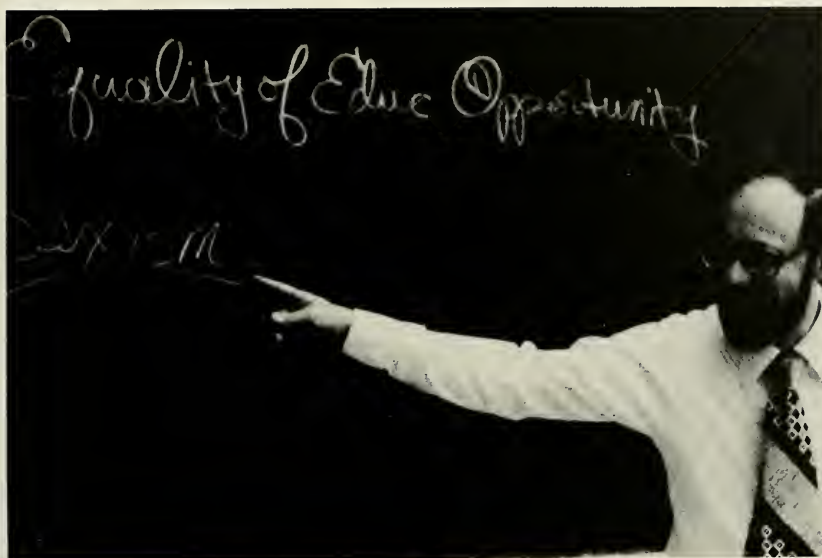 Equality of Educ Opportunity